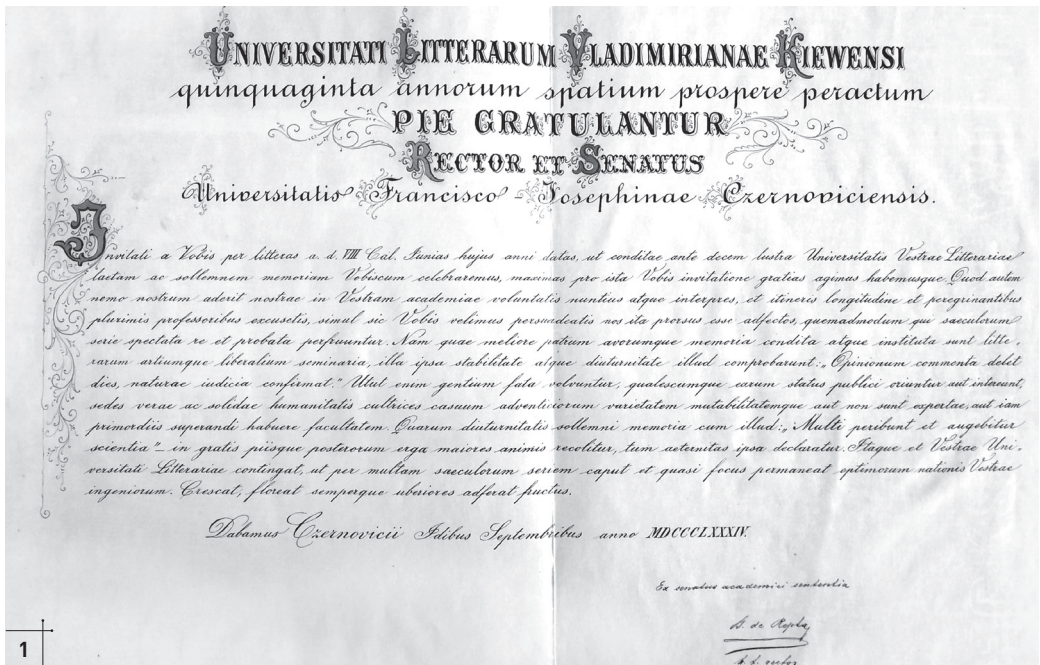 UNIVERSITATI LITTERARUM VLADIMIRIANAE KIEWENSI
quinquaginta annorum spatium prospere peractum
PIE GRATULANTUR
RECTOR ET SENATUS
Universitatis Francisco-Josephinae Czernoviciensis.
Invitati a Vobis per litteras a. d. VIII Cal. Junias hujus anni datas, ut conditae ante decem lustra Universitatis Vestrae Litterariae
laetam ac sollemnem memoriam Vobiscum celebraremus, maximas pro ista Vobis invitatione gratias agimus habemusque. Quod autem
nemo nostrum aderit nostrae in Vestram academiae voluntatis nuntius atque interpres, et itineris longitudine et peregrinantibus
plurimis professoribus excusetis, simul sic Vobis velimus persuadeatis nos ita prorsus esse adfectos, quemadmodum qui saeculorum
serie spectata re et probata perfruuntur. Nam quae meliore patrum avorumque memoria condita atque instituta sunt litte-
rarum artiumque liberalium seminaria, illa ipsa stabilitate atque diuturnitate illud comprobarunt: „Opinionum commenta delet
dies, naturae iudicia confirmat." Utut enim gentium fata volvuntur, qualescumque earum status publici oriuntur aut intereunt,
sedes verae ac solidae humanitatis cultrices casuum adventiciorum varietatem mutabilitatemque aut non sunt expertae, aut iam
primordiis superandi habuere facultatem. Quarum diuturnitatis sollemni memoria cum illud: „Multi peribunt et augebitur
scientia" – in gratis piisque posterorum erga maiores animis recolitur, tum aeternitas ipsa declaratur. Itaque et Vestrae Uni-
versitati Litterariae contingat, ut per multam saeculorum seriem caput et quasi focus permaneat optimorum nationis Vestrae
ingeniorum. Crescat, floreat semperque uberiores adferat fructus.
Dabamus Czernovicii Idibus Septembribus anno MDCCCLXXXIV.
Ex senatus academici sententia
de Repta
rector
1